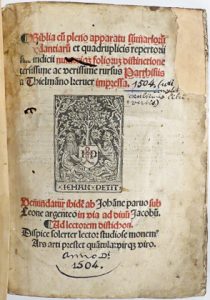 Biblia cũ pleno apparatu summariorũ
cordantiarũ et quadruplicis repertorii
indicii numeriqz foliorum distinctione
terissime ac verissime rursus Parrhisiis
a Thielmãno kerver impressa.
1504.
IEHAN PETIT
Venundatur ibidẽ ab Johãne parvo sub
Leone argenteo in via ad divũ Jacobũ.
Ad lectorem distichon.
Dispice solerter lector studiose monem⁹
Ars arti prestet quãtula: virqz viro.
anno Dⁱ
1504.